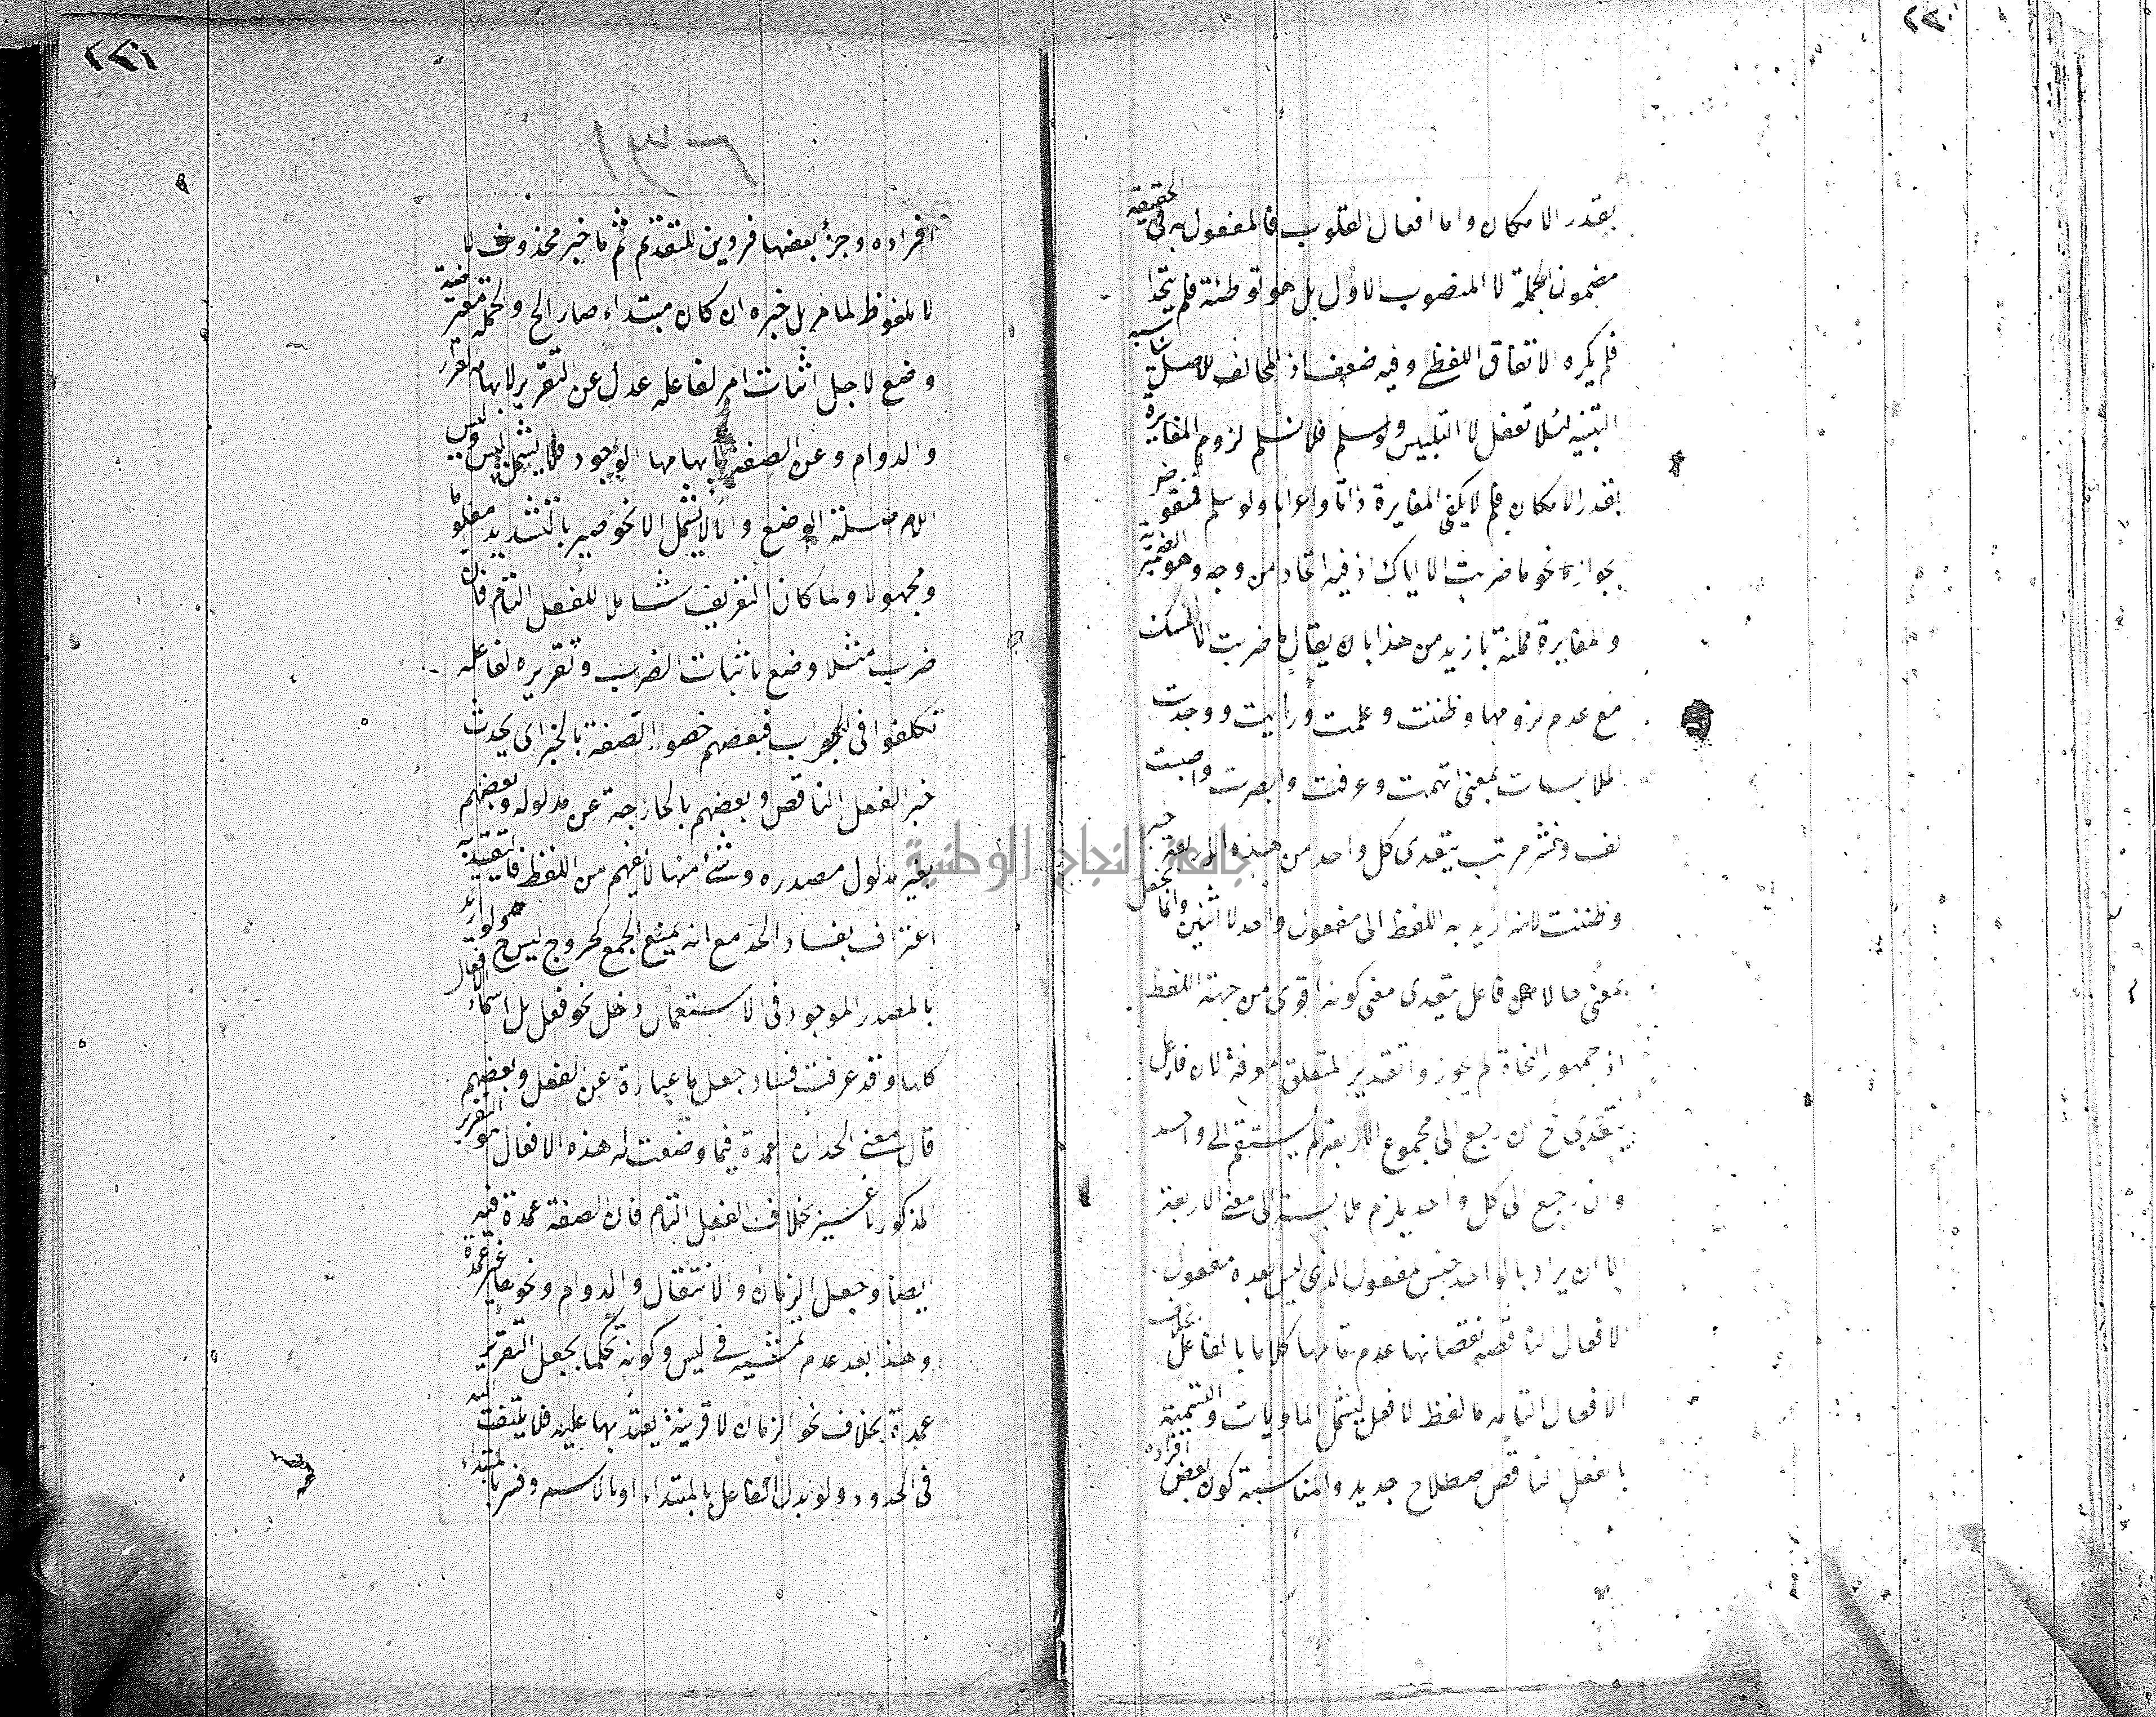 ٢٣٠
بقدر الامكان واما افعال القلوب فالمفعول به فى الحقيقة
مضمون الجملة لا المنصوب الاول بل هو توطئة فلم يتحدا
فلم يكره الاتفاق اللفظى وفيه ضعف اذ المخالف للاصل يناسبه
التنبيه لئلا تغفل لا التلبيس ولو سلم فلا نسلم لزوم المغايرة
بقدر الامكان فلم لا يكفى المغايرة ذاتا واعرابا ولو سلم فمنقوض
بجوازه نحو ما ضربت الا اياك اذ فيه اتحاد من وجه وهو الضميرية
والمغايرة ممكنة بازيد من هذا بان يقال ما ضربت الا نفسك
مع عدم لزومها وظننت وعلمت ورأيت ووجدت
الملابسات بمعنى اتهمت وعرفت وابصرت واصبت
لف ونشر مرتب يتعدى كل واحد من هذه الاربعة خبر
وظننت لانه اريد به اللفظ الى مفعول واحد لا اثنين وانما لم يجعل
بمعنى حالا من فاعل يتعدى مع كونه اقوى من جهة اللفظ
اذ جمهور النحاة لم يجوزوا تقدير المتعلق معرفة لان فاعل
يتعدى ح ان رجع الى مجموع الاربعة لم يستقم الى واحد
وان رجع الى كل واحد يلزم ملابسته الى معنى الاربعة
الا ان يراد بالواحد جنس مفعول الذى ليس بعده مفعول
الافعال الناقصة نقصانها عدم تمامها كلاما بالفاعل بخلاف
الافعال التامة ما لفظ لا فعل ليشمل الماويات والتسمية
بالفعل الناقص اصطلاح جديد والمناسبة كون بعض افراده
٢٣١
افراده وجزء بعضها قروين للتقدم ثم ما خبر محذوف لا
لا ملفوظ لما مر بل خبره ان كان مبتداء صار الخ والجملة معترضة
وضع لاجل اثبات امر لفاعله عدل عن التقرير لابهامه
والدوام وعن الصفة لابهامها الوجود فلا يشمل ليس
اللام صلة الوضع والا لا يشمل الا نحو صير بالتشديد معلوما
ومجهولا ولما كان التعريف شاملا للفعل التام فان
ضرب مثلا وضع لاثبات الضرب وتقريره لفاعله
تكلفوا فى الجواب فبعضهم خصوا الصفة بالخبر اى يحدث
خبر الفعل الناقص وبعضهم بالخارجة عن مدلوله وبعضهم
بغير مدلول مصدره وشئ منها لا يفهم من اللفظ فالتقييد به
اعتراف بفساد الحد مع انه يمنع الجمع لخروج ليس ح ولو اريد
بالمصدر الموجود فى الاستعمال دخل نحو فعل بل اسماء الافعال
كلها وقد عرفت فساد جعل ما عبارة عن الفعل وبعضهم
قال معنى الحد ان العمدة فيما وضعت له هذه الافعال هو التقرير
المذكور لا غير بخلاف الفعل التام فان الصفة عمدة فيه
ايضا وجعل الزمان والانتقال والدوام ونحوها غير عمدة
وهذا بعد عدم تمشيه فى ليس وكونه تحكما بجعل التقرير
عمدة بخلاف نحو الزمان لا قرينة يعتد بها عليه فلا يلتفت اليه
فى الحدود ولو بدل الفاعل بالمبتداء او بالاسم وفسر بالمبتداء
جامعة النجاح الوطنية